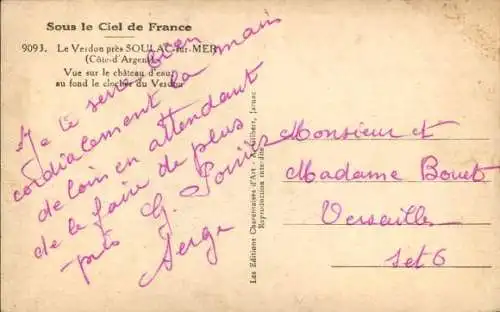 Sous le Ciel de France
9093. Le Verdon près SOULAC-sur-MER
(Côte-d'Argent)
Vue sur le château d'eau,
au fond le clocher du Verdon
Je te serre bien
cordialement la main
de loin en attendant
de le faire de plus
près G.
Serge
Les Editions Charentaises d'Art - Jarnac
Reproduction interdite
Monsieur et
Madame Bouet
Versailles
Set 6